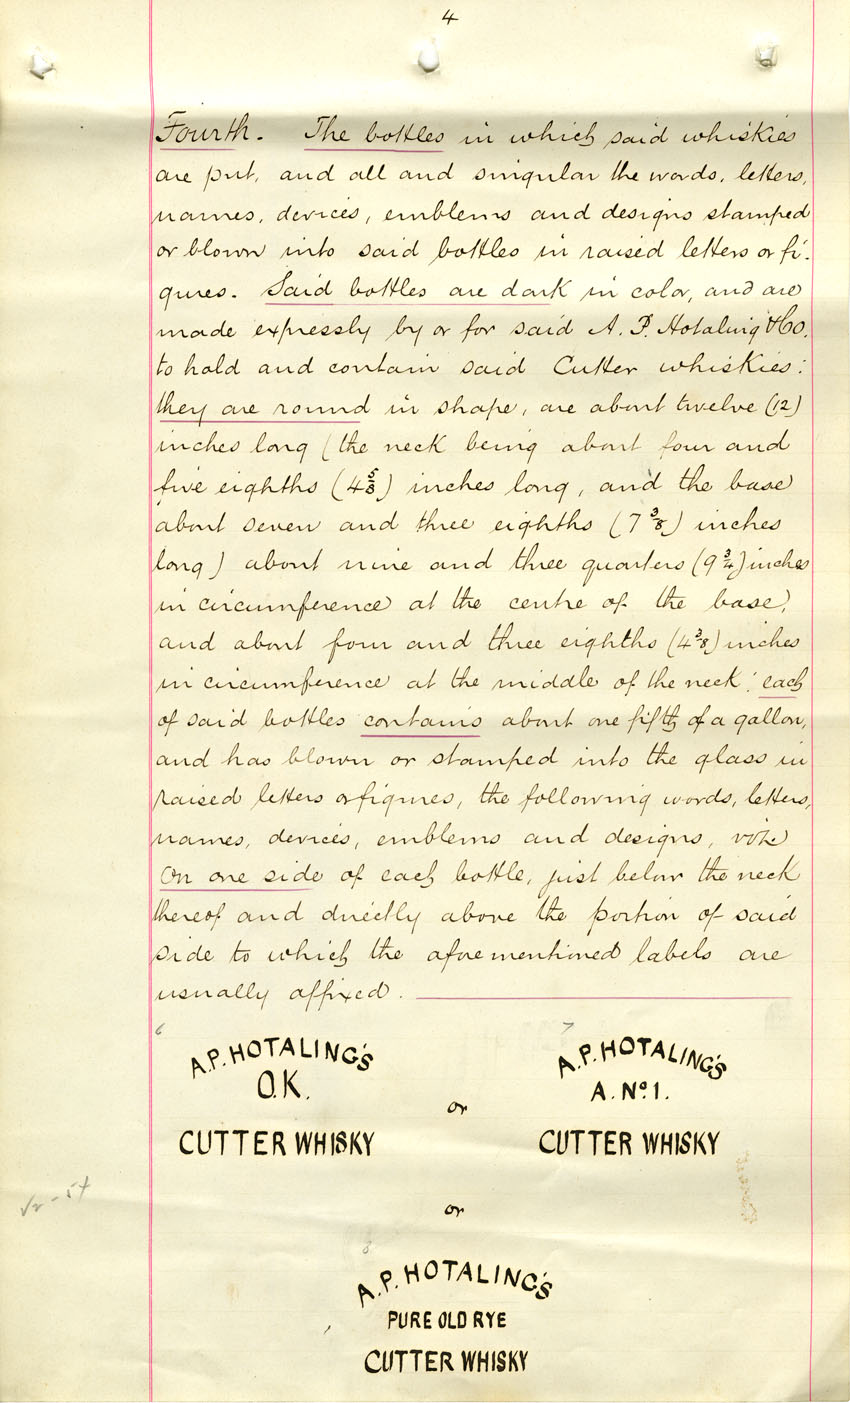 4
Fourth. The bottles in which said whiskies
are put, and all and singular the words, letters,
names, devices, emblems and designs stamped
or blown into said bottles in raised letters or fi-
gures. Said bottles are dark in color, and are
made expressly by or for said A. P. Hotaling & Co.
to hold and contain said Cutter whiskies:
they are round in shape, are about twelve (12)
inches long (the neck being about four and
five eighths (4 5/8) inches long, and the base
about seven and three eighths (7 3/8) inches
long) about nine and three quarters (9 3/4) inches
in circumference at the centre of the base,
and about four and three eighths (4 3/8) inches
in circumference at the middle of the neck: each
of said bottles contains about one fifth of a gallon,
and has blown or stamped into the glass in
raised letters or figures, the following words, letters,
names, devices, emblems and designs, viz
On one side of each bottle, just below the neck
thereof and directly above the portion of said
side to which the aforementioned labels are
usually affixed.
6
A.P. HOTALING'S
O.K.
CUTTER WHISKY
or
7
A.P. HOTALING'S
A. No. 1.
CUTTER WHISKY
or
8
A.P. HOTALING'S
PURE OLD RYE
CUTTER WHISKY